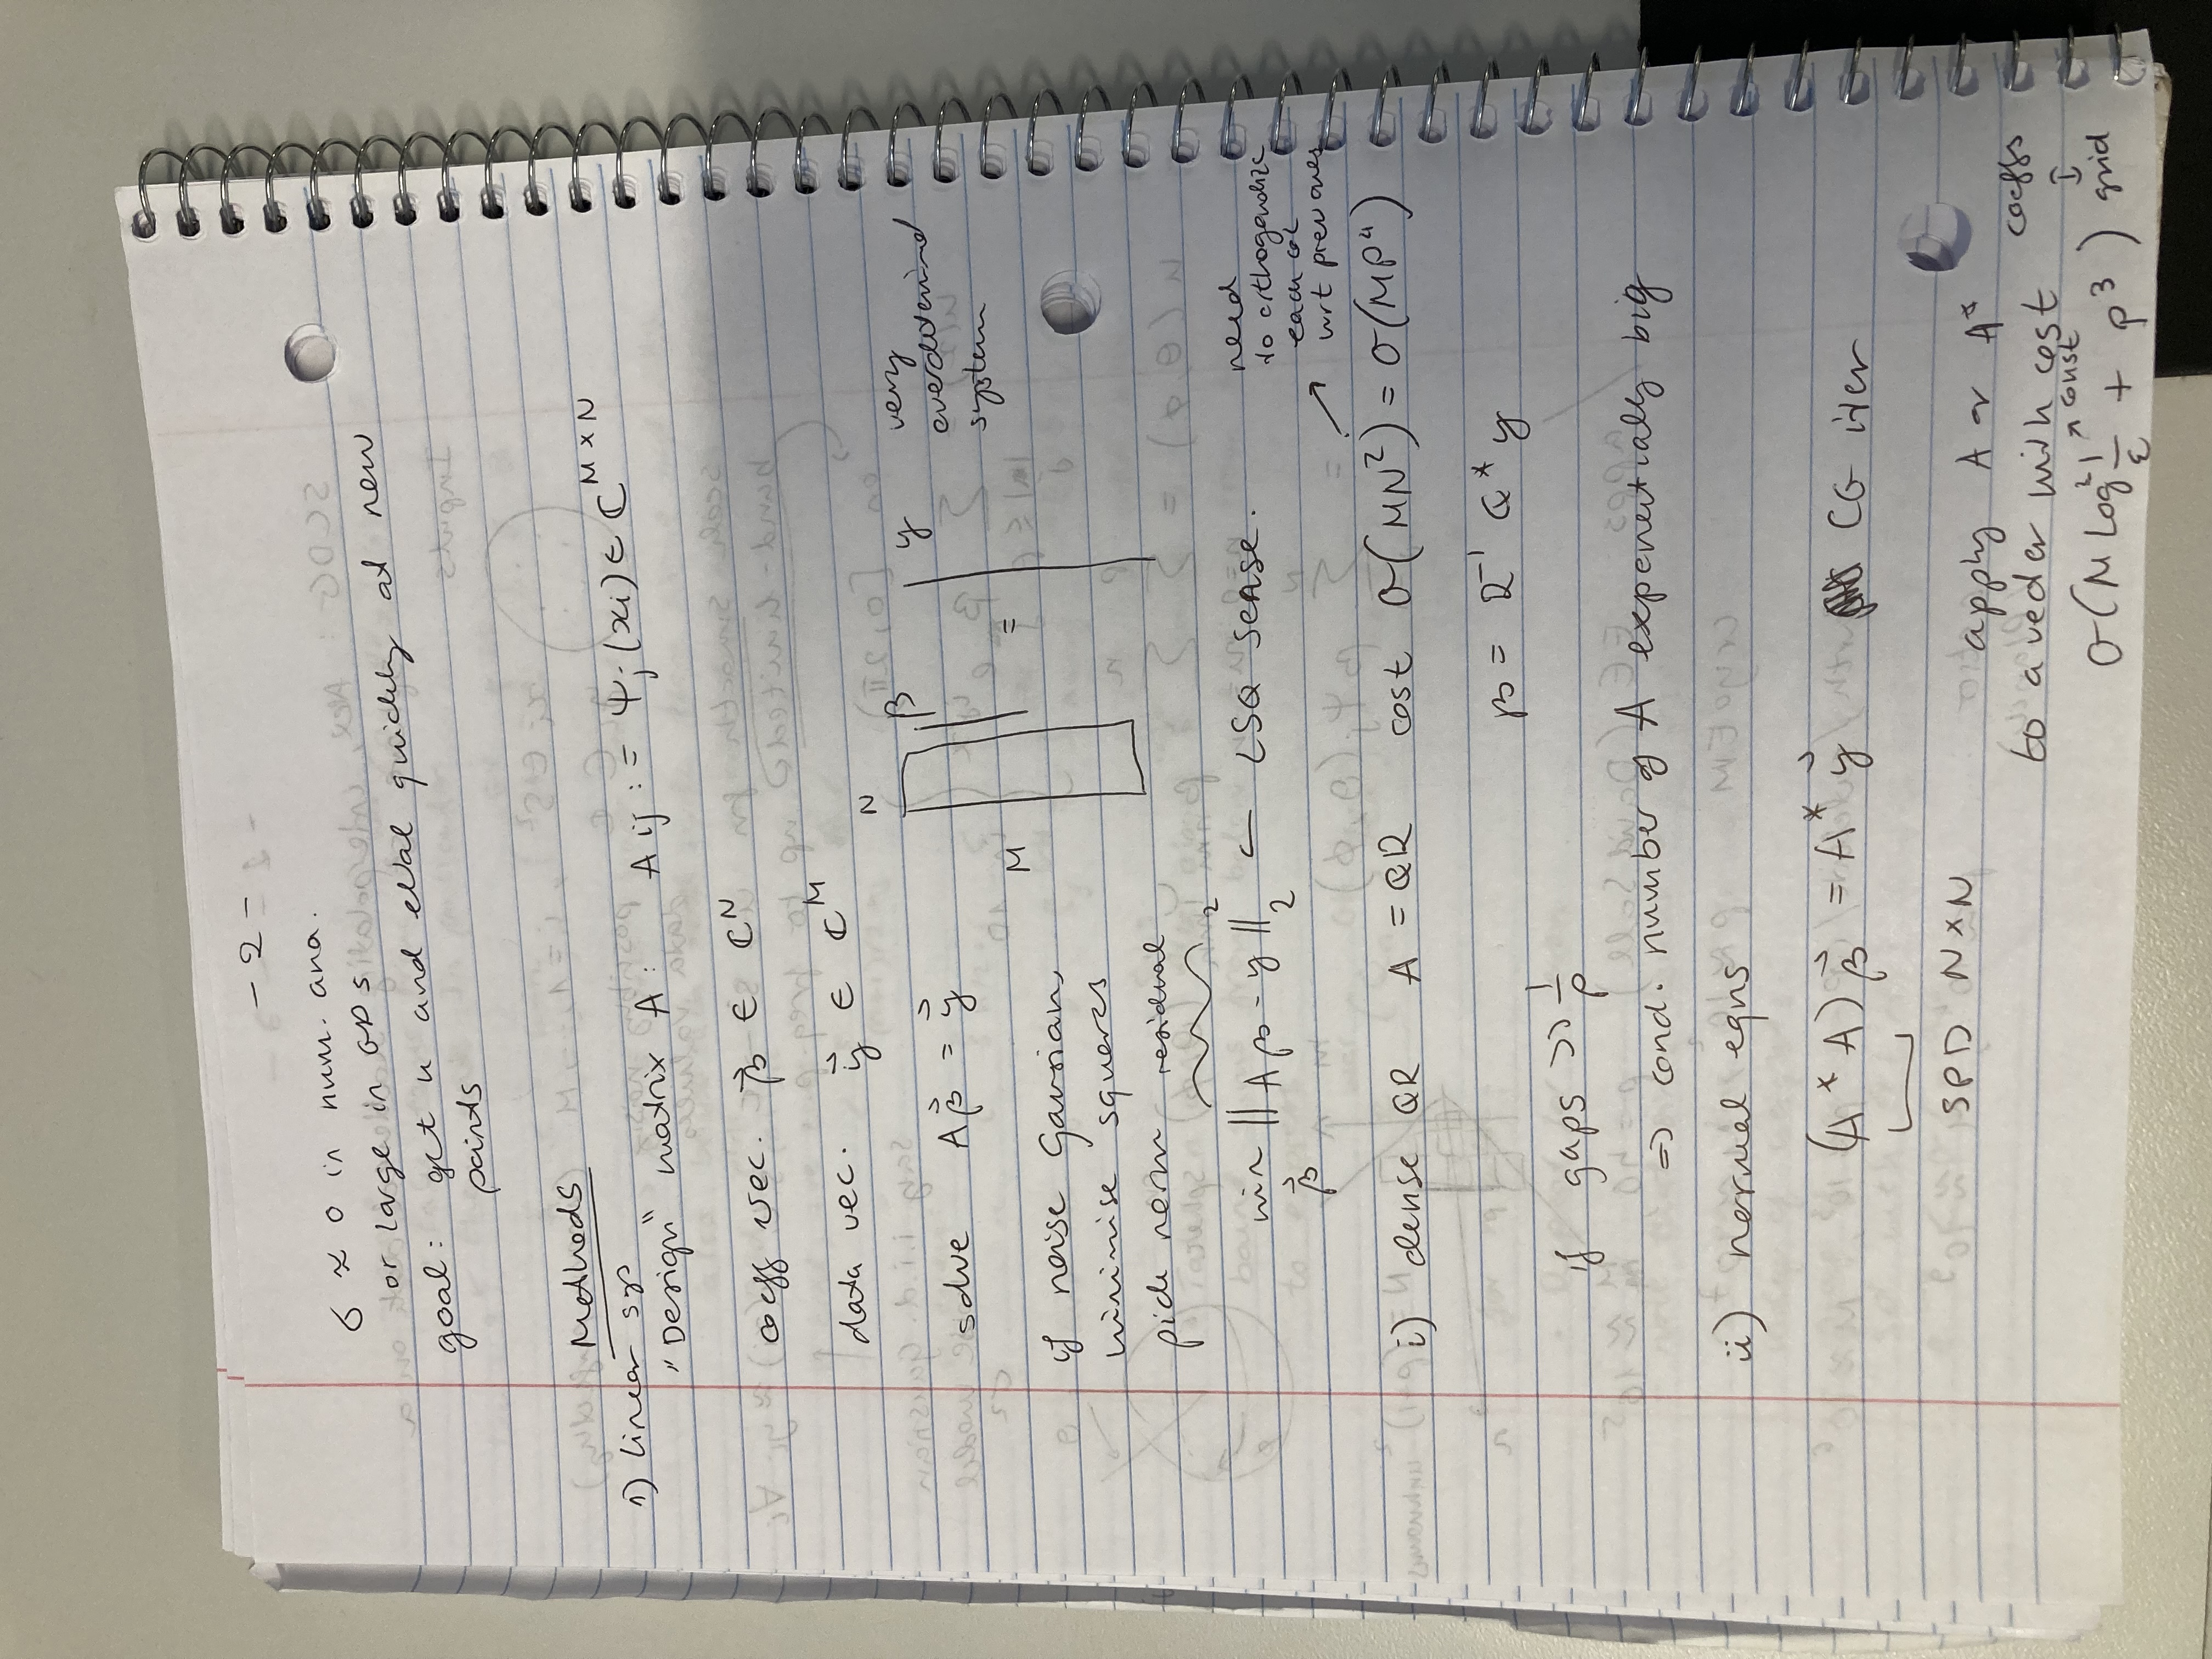 - 2 -
σ ≈ 0 in num. ana.
or large in GPs
goal: get u and eval quickly at new
points
Methods
1) linear sys
"Design" matrix A: A ij := Ψj (xi) ∈ ℂ^{M×N}
coeff vec. β⃗ ∈ ℂ^N
data vec. y⃗ ∈ ℂ^M
solve Aβ⃗ = y⃗
N
M
β
=
y
very
overdetermined
system
if noise Gaussian,
minimise squares
pick norm residual
min_{β⃗} ||Aβ - y||_2^2 ← LSQ sense.
need
to orthogonalize
each col
wrt prev ones
i) dense QR A = QR cost O(MN²) = O(MP⁴)
β = R⁻¹ Q* y
if gaps >> 1/p
⇒ cond. number of A exponentially big
ii) normal eqns
(A* A) β⃗ = A* y⃗ CG iter
SPD N×N
apply A or A*
to a vector with cost
O(M log² 1/ε + p³)
↗ const
coeffs
↕
grid